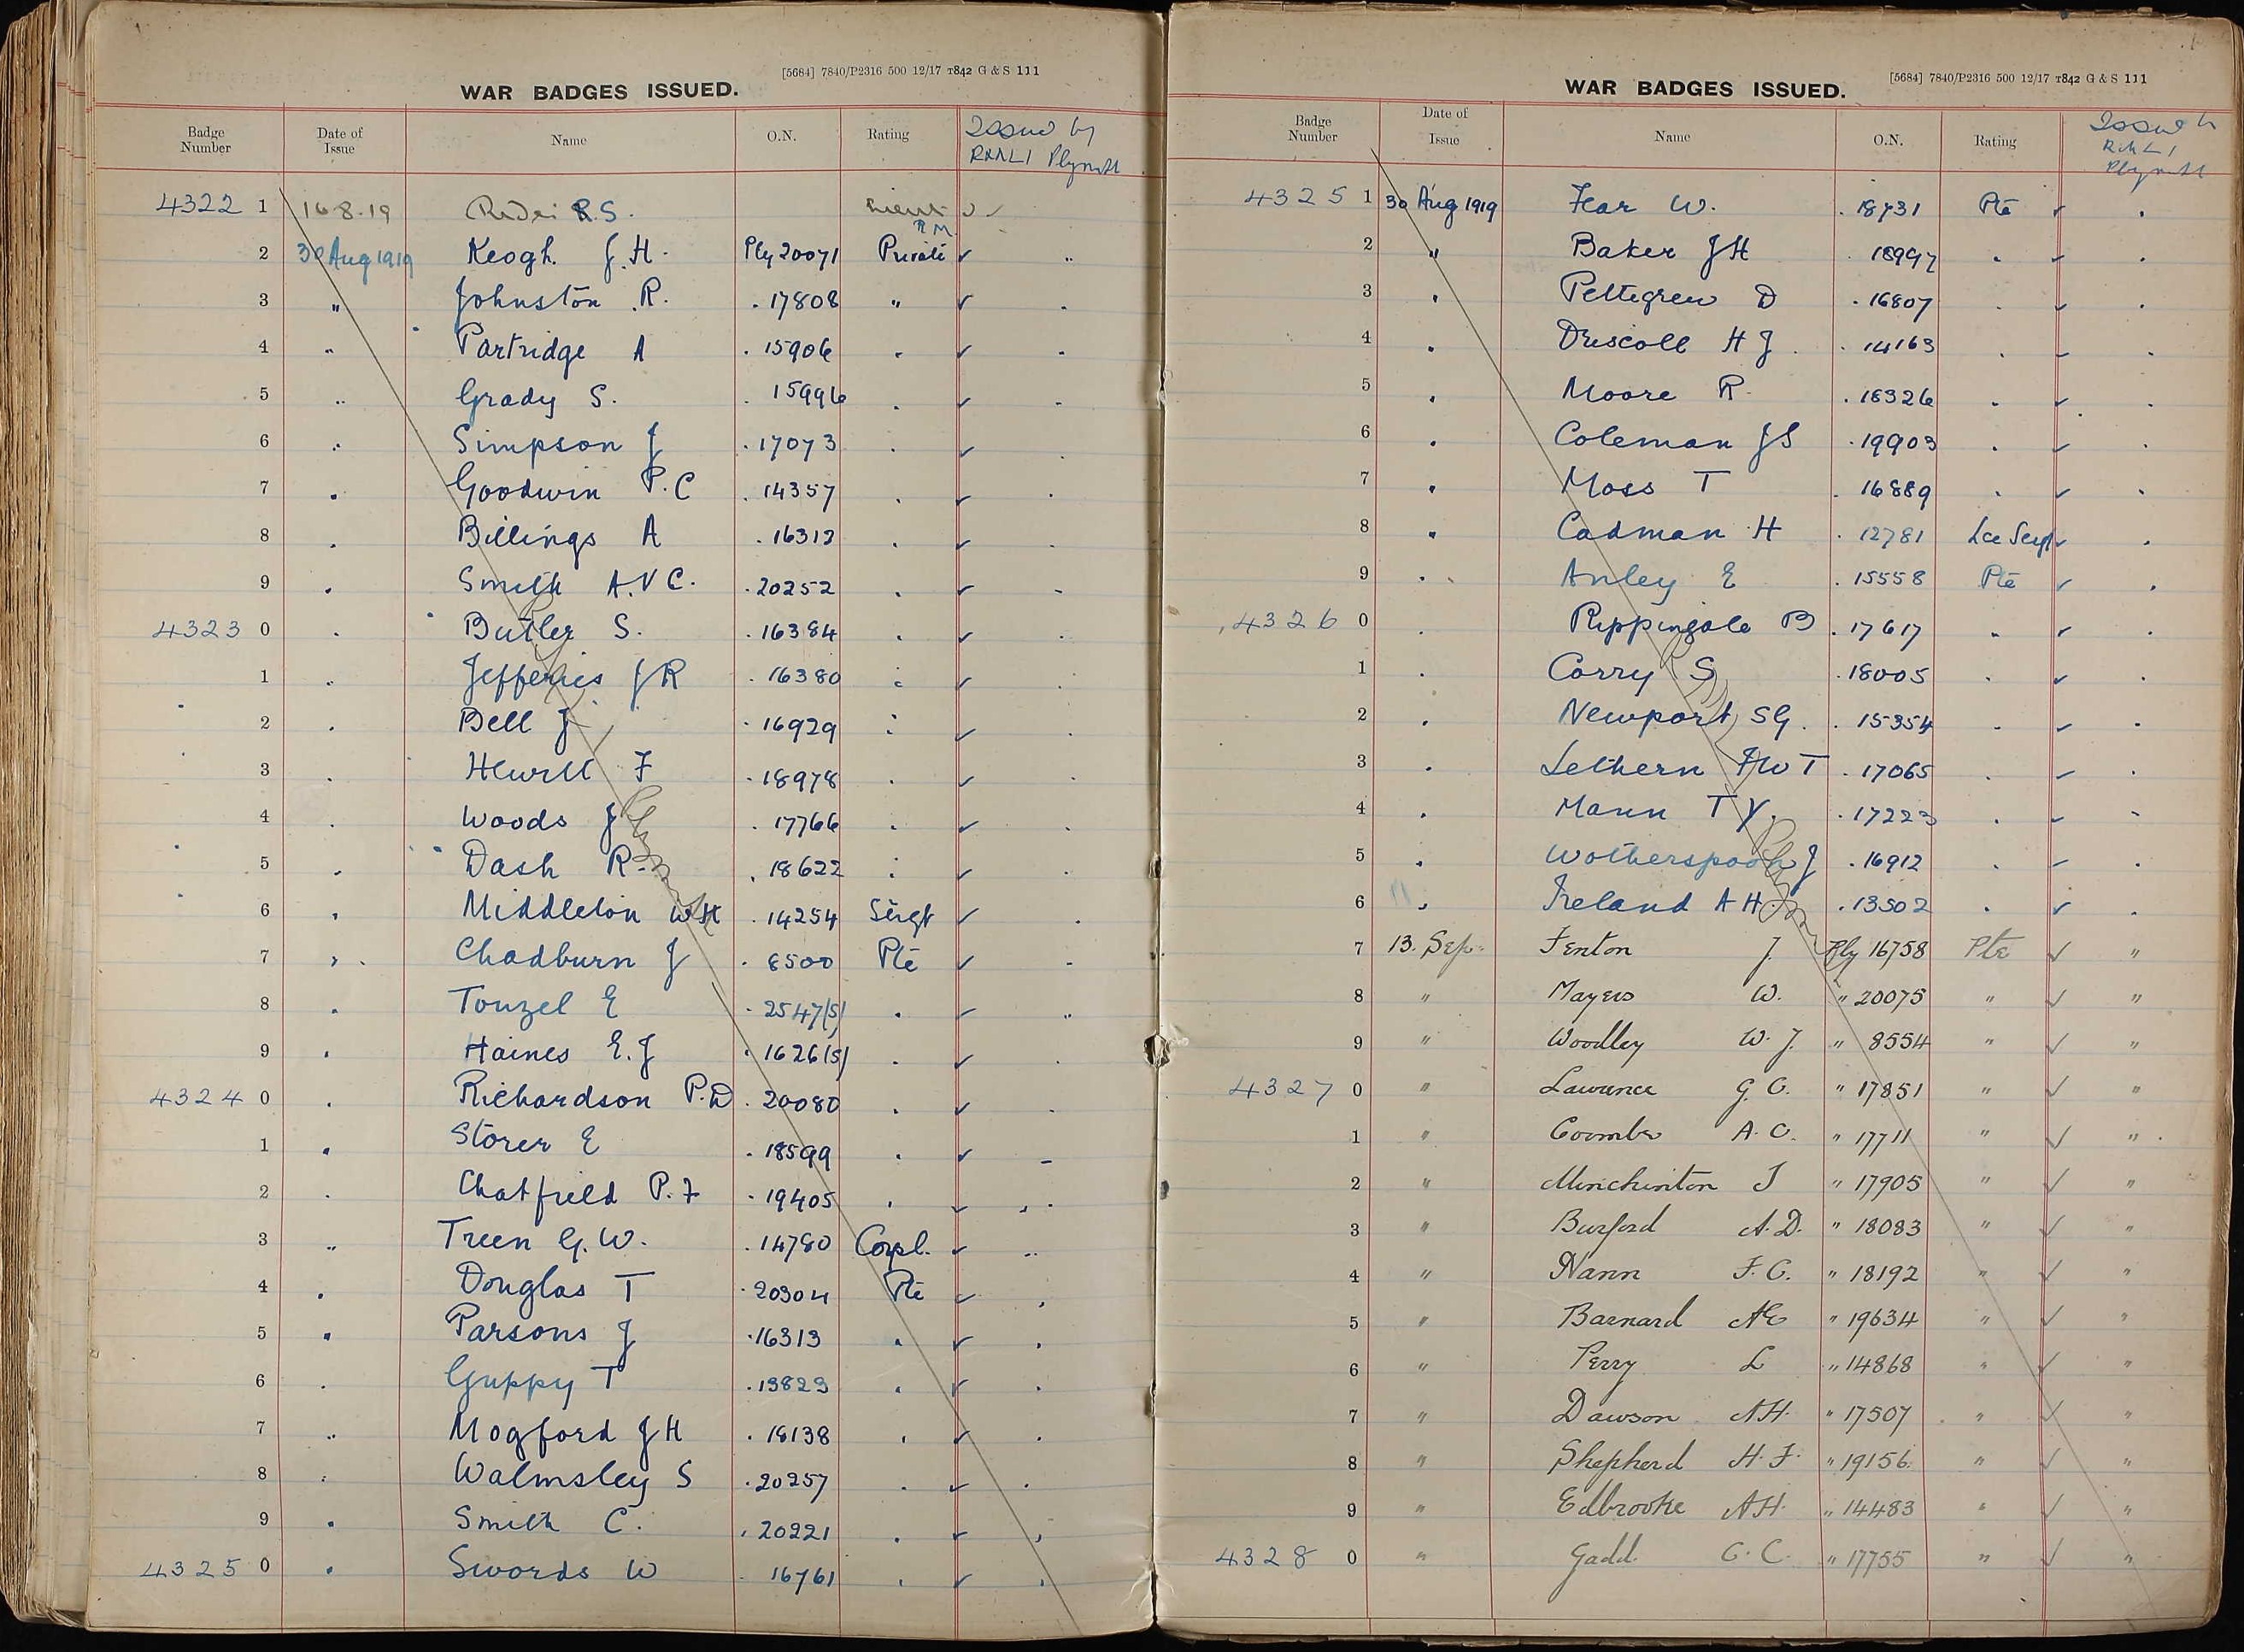 [5684] 7840/P2316 500 12/17 T842 G & S 111
WAR BADGES ISSUED.
Badge Number Date of Issue Name O.N. Rating Issued by RMLI Plymth
4322 1 16.8.19 R.S. Lieut RM
2 30 Aug 1919 Keogh J.H. Ply 20071 Private ✓ "
3 " Johnston R. . 17808 " ✓ .
4 " Partridge A . 15906 . ✓ .
5 " Grady S. . 15996 . ✓ .
6 " Simpson J . 17073 . ✓ .
7 . Goodwin P.C . 14357 . ✓ .
8 . Billings A . 16312 . ✓ .
9 . Smith A.V C. . 20252 . ✓ .
4323 0 . Butler S. . 16384 . ✓ .
1 " Jefferies J R . 16380 " ✓ .
2 . Bell J . 16929 " ✓ .
3 . Hewett F . 18978 . ✓ .
4 . Woods J . 17766 . ✓ .
5 . Dash R. . 18622 . ✓ .
6 . Middleton W H . 14254 Sergt ✓ .
7 " Chadburn J . 8500 Pte ✓ .
8 . Touzel E . 2547(S) . ✓ "
9 . Haines E.J . 1626(S) . ✓ .
4324 0 . Richardson P.D . 20080 . ✓ .
1 . Storer E . 18599 . ✓ .
2 . Chatfield P.F . 19405 . ✓ .
3 " Treen G.W. . 14780 Corpl. ✓ "
4 . Douglas T . 20304 Pte ✓ .
5 . Parsons J . 16313 . ✓ .
6 . Guppy T . 13823 . ✓ .
7 " Mogford J H . 18138 . ✓ .
8 . Walmsley S . 20257 . ✓ .
9 . Smith C. . 20221 . ✓ .
4325 0 . Swords W 16761 . ✓ .
Plymouth
[5684] 7840/P2316 500 12/17 T842 G & S 111
WAR BADGES ISSUED.
Badge Number Date of Issue Name O.N. Rating Issued by RMLI Plymth
4325 1 30 Aug 1919 Fear W. . 18731 Pte ✓ .
2 " Baker J H . 18997 . ✓ .
3 . Pettegrew D . 16807 . ✓ .
4 . Driscoll H J . . 14163 . ✓ .
5 . Moore R . 18326 . ✓ .
6 . Coleman J S . 19903 . ✓ .
7 . Moss T . 16889 . ✓ .
8 . Cadman H . 12781 Lce Sergt ✓ .
9 . Anley E . 15558 Pte ✓ .
4326 0 . Rippingale B . 17617 . ✓ .
1 . Corry S . 18005 . ✓ .
2 . Newport S G . . 15354 . ✓ .
3 . Lethern W T . 17065 . ✓ .
4 . Mann T V. . 17223 . ✓ .
5 . Wotherspoon J . 16912 . ✓ .
6 . Ireland A H. . 13502 . ✓ .
7 13. Sep. Fenton J. Ply 16758 Pte ✓ "
8 " Mayers W. " 20075 " ✓ "
9 " Woodley W. J. " 8554 " ✓ "
4327 0 " Lawrence G. C. " 17851 " ✓ "
1 " Coombe A. C. " 17711 " ✓ "
2 " Minchinton J " 17905 " ✓ "
3 " Burford A. D. " 18083 " ✓ "
4 " Nann F. C. " 18192 " ✓ "
5 " Barnard A E " 19634 " ✓ "
6 " Perry L " 14868 " ✓ "
7 " Dawson A H. " 17507 " ✓ "
8 " Shepherd H. F. " 19156 " ✓ "
9 " Edbrooke A H. " 14483 " ✓ "
4328 0 " Gadd. C. C. " 17755 " ✓ "
Plymouth